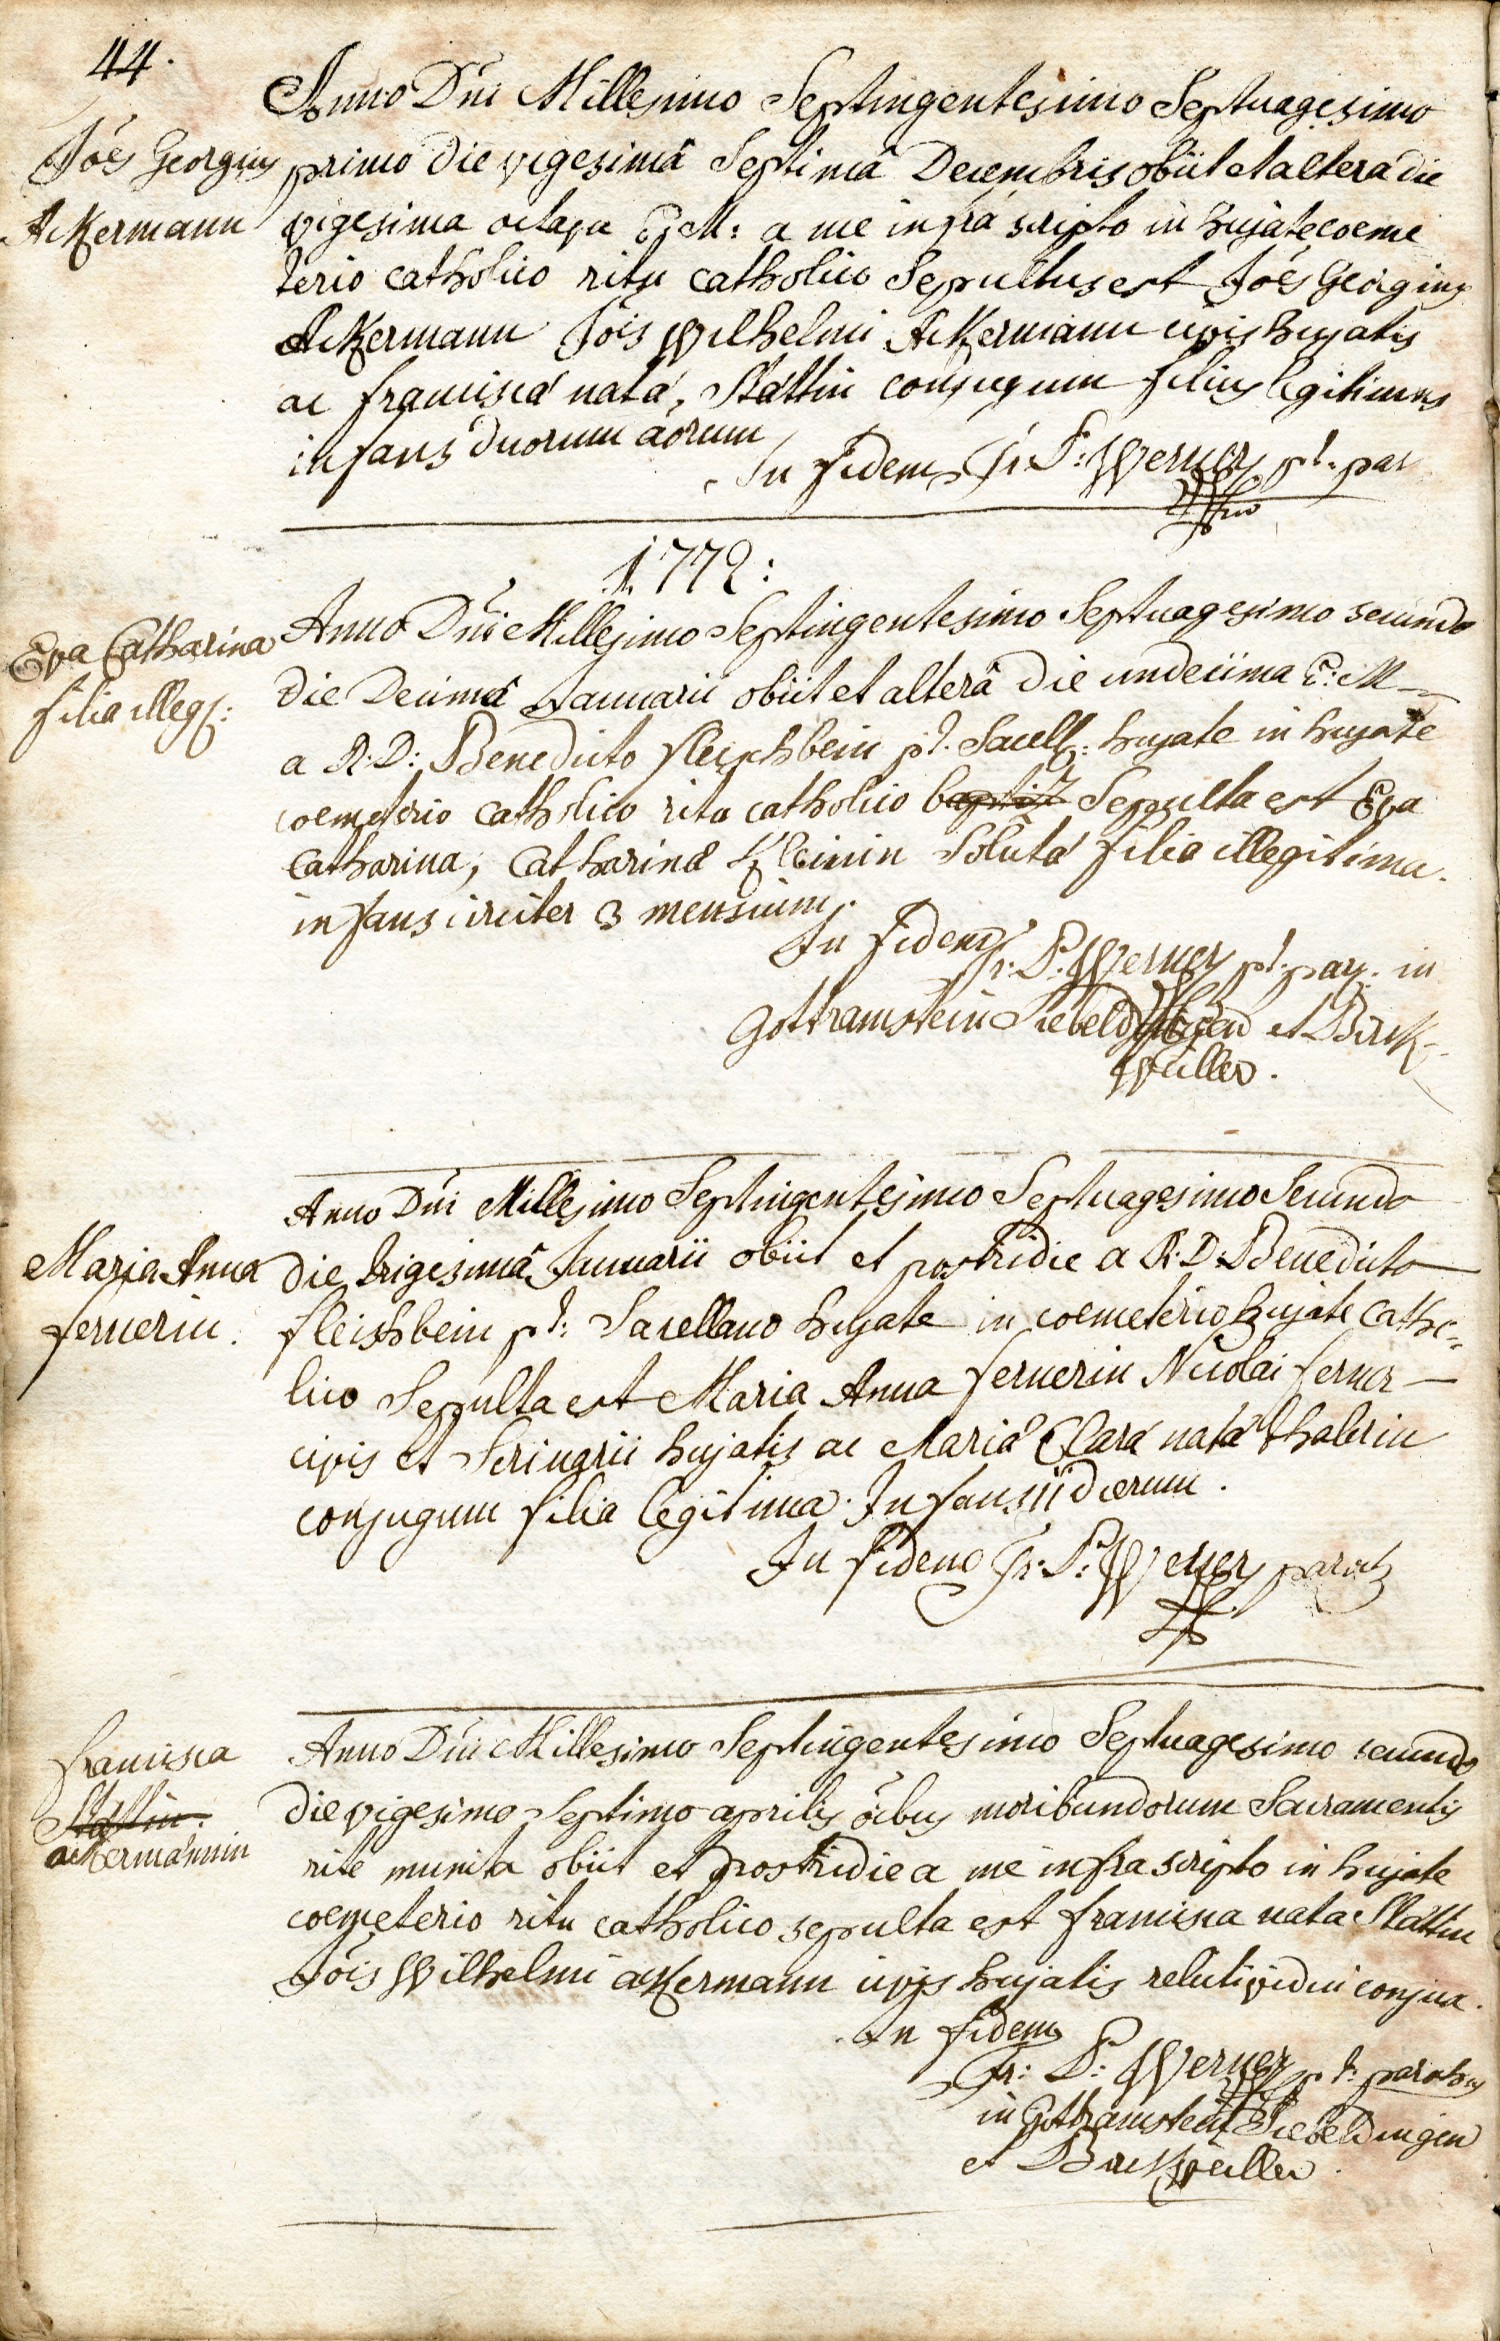 44.
Anno Dn̄i Millesimo Septingentesimo Septuagesimo
Jōes Georgius
primo die vigesimâ Septimâ Decembris obiit et altera die
Ackermann
vigesima octava E: M: a me infra scripto in hujate coeme
terio catholico ritu catholico Sepultus est Jōes Georgius
Ackermann Jōis Wilhelmi Ackermann civis hujatis
ac francisca nata Stättin conjugum filius legitimus
infans duorum aōrum
In fidem Fr: P: Werner pt. par
1772:
Anno Dn̄i Millesimo Septingentesimo Septuagesimo secundo
Eva Catharina
filia illeg:
die Decimâ Januarii obiit et alterâ die undecima E: M
a R: D: Benedicto fleischbein pt. Sacell: hujate in hujate
coemeterio catholico ritu catholico Sepulta est Eva
Catharina, Catharina Kleinin Soluta filia illegitima.
infans circiter 3 mensium.
In fidem
Fr: P: Werner pt. par. in
Gottramstein Siebeldingen et Birck-
weiller.
Anno Dn̄i Millesimo Septingentesimo Septuagesimo Secundo
Maria Anna
fernerin.
die trigesimâ Januarii obiit et postridie a R: D: Benedicto
fleischbein pt: Sacellano hujate in coemeterio hujate catho-
lico Sepulta est Maria Anna fernerin Nicolai ferner
civis et Scrinarii hujatis ac Maria Clara nata Thalerin
conjugum filia legitima. Infans dierum.
In fidem Fr: P: Werner paroch
Anno Dn̄i Millesimo Septingentesimo Septuagesimo secundo
francisca
Stättin.
ackermännin
die vigesimo Septimo aprilis ōibus moribundorum Sacramentis
rite munita obiit et postridie a me infra scripto in hujate
coemeterio ritu catholico sepulta est francisca nata Stättin
Jōis Wilhelmi ackermann civis hujatis relicti vidui conjux.
In fidem
Fr: P: Werner pt: parochus
in Gottramstein Siebeldingen
et Birckweiller